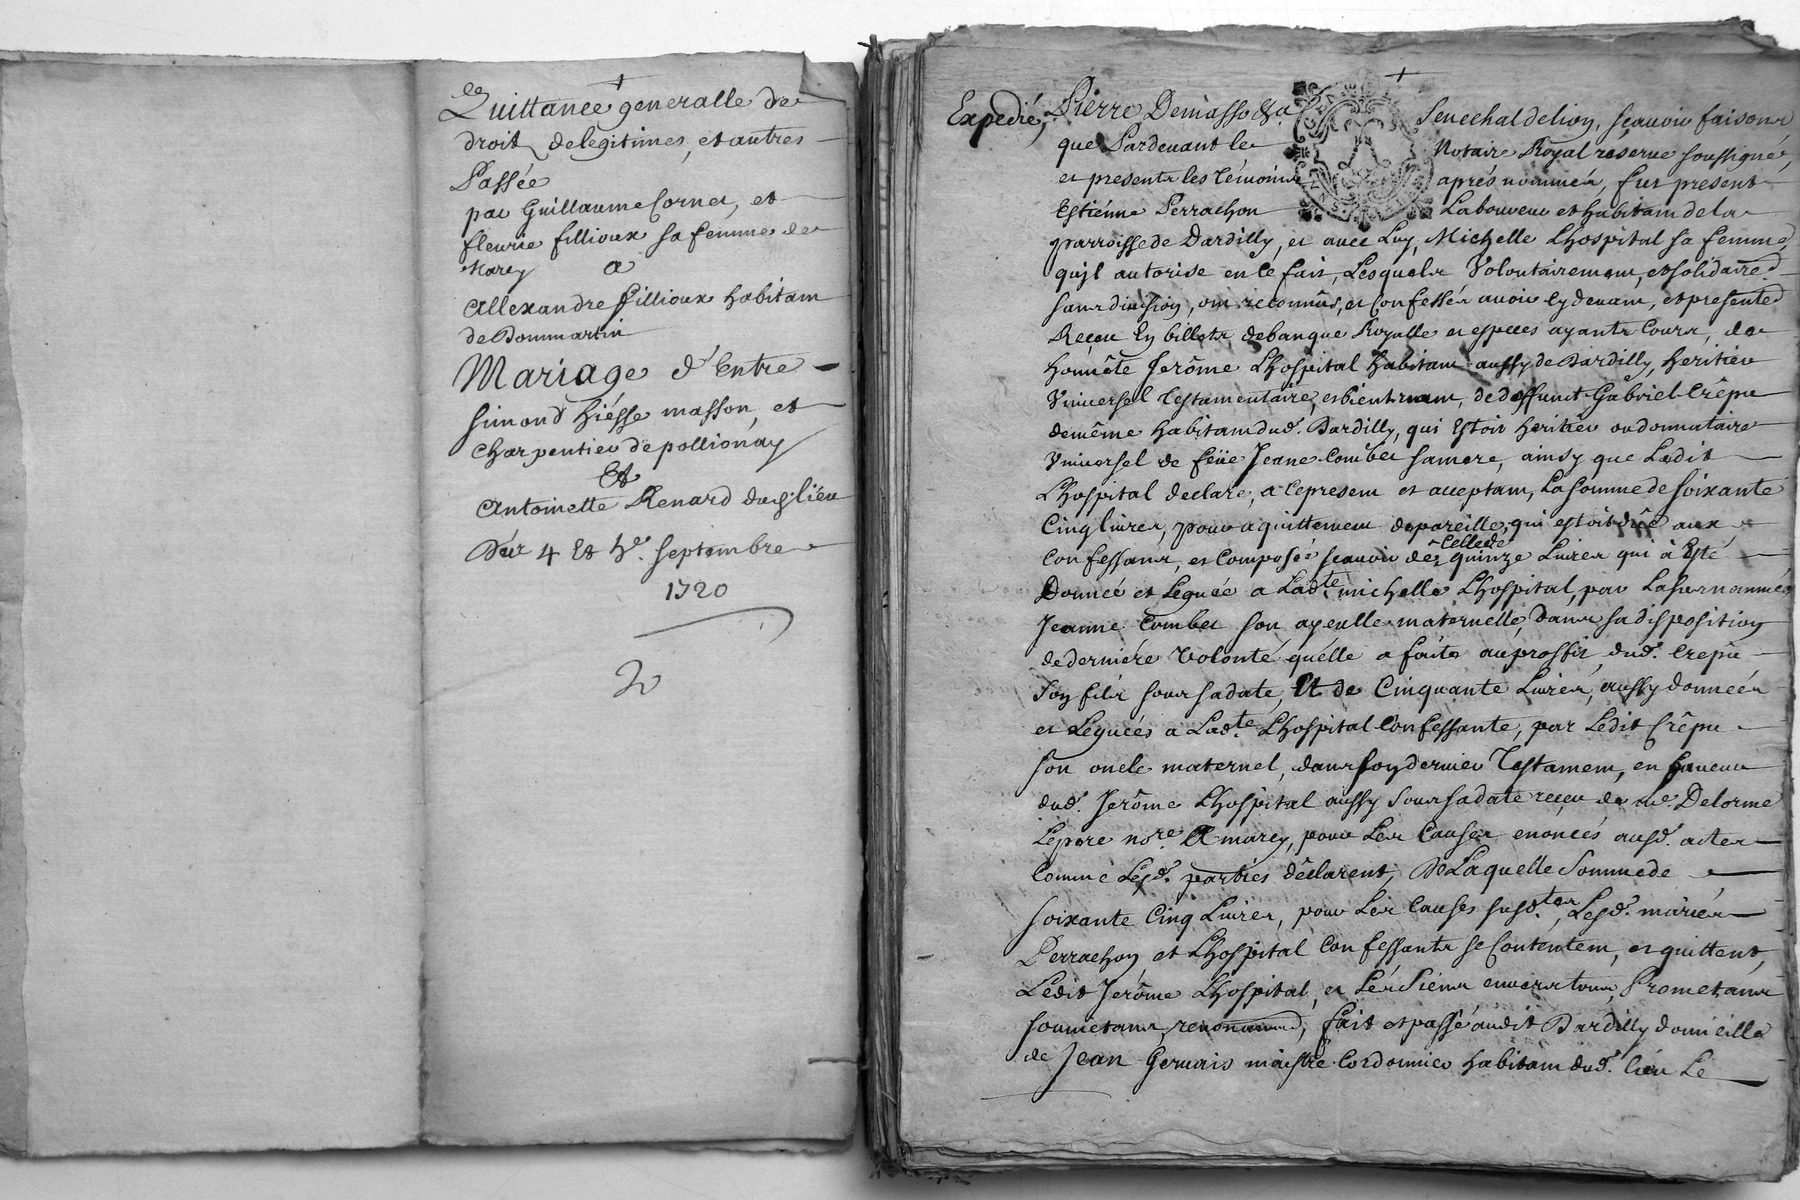 Quittance generalle de
droit delegitimes, et autres
Passée
par Guillaume Cornet, et
fleurie fillioux sa femme de
marcy a
Allexandre fillioux habitant
de Dommartin
Mariage d'Entre
simond hiésse masson, et
charpentier de pollionay
Et
Antoinette Renard dud. lieu
Du 4 Et he. septembre
1720
Expedié, Pierre Demasso &a. Senechal delion, sçavoir faisons
que Pardevant le Notaire Royal reservé soussigné,
et presents les témoins aprés nommés, fut present
Estiénne Perrachon Laboureur et habitant de la
parroisse de Dardilly, et avec Luy, Michelle Lhospital sa femme
quil autorise en ce fait, Lesquels Volontairement, et solidaired.
sans division, ont reconnûs, et Confessés avoir cy devant, et presented.
Reçeu En billets debanque Royalle et especes ayants Cours, de
honnête Jerôme Lhospital habitant aussy de Dardilly, heritier
Universel testamentaire, et bientenant, de deffunct Gabriel Crêpu
demême habitant dud. Dardilly, qui Estoit heritier ou donnataire
Universel de feüe Jeane Combet samere, ainsy que Ledit
Lhospital declare, a cepresent et acceptant, La somme de soixante
Cinq livres, pour aquittement depareille, qui estoit dûe aux
Confessants, et Composée sçavoir de celle de quinze Livres qui à Esté
Donnée et Leguée a Ladte. michelle Lhospital, par Lasurnommée
Jeanne Combet son ayeulle maternelle, dans sa disposition
de derniére Volonté quélle a faite auproffit dud. Crepu
son fils sous sadate, Et de Cinquante Livres, aussy donnéés
et Leguéés a Ladte. Lhospital Confessante, par Ledit Crêpu
son oncle maternel, dans son dernier Testament, en faveur
dud. Jerôme Lhospital aussy sous sadate reçeu de me Delorme
Lepere nore. A marcy, pour Les Causes enoncés ausd. actes
Comme Lesd. partiés déclarent, De Laquelle Somme de
soixante Cinq Livres, pour Les Causes susd.tes, Lesd. mariés
Perrachon et Lhospital Confessants se Contentent, et quittent,
Ledit Jerôme Lhospital, et Lés Siéns envers tous, Prometants
soumetants, renonceants, fait et passé audit Dardilly domicille
de Jean Gervais maistre Cordonnier habitant dud. lieu Le